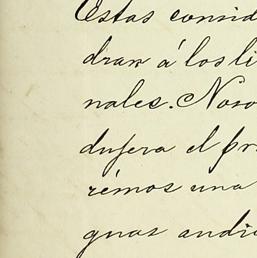 Estas consid
dran á los li
nales. Noso
dujera el pr
rémos una
guas andi